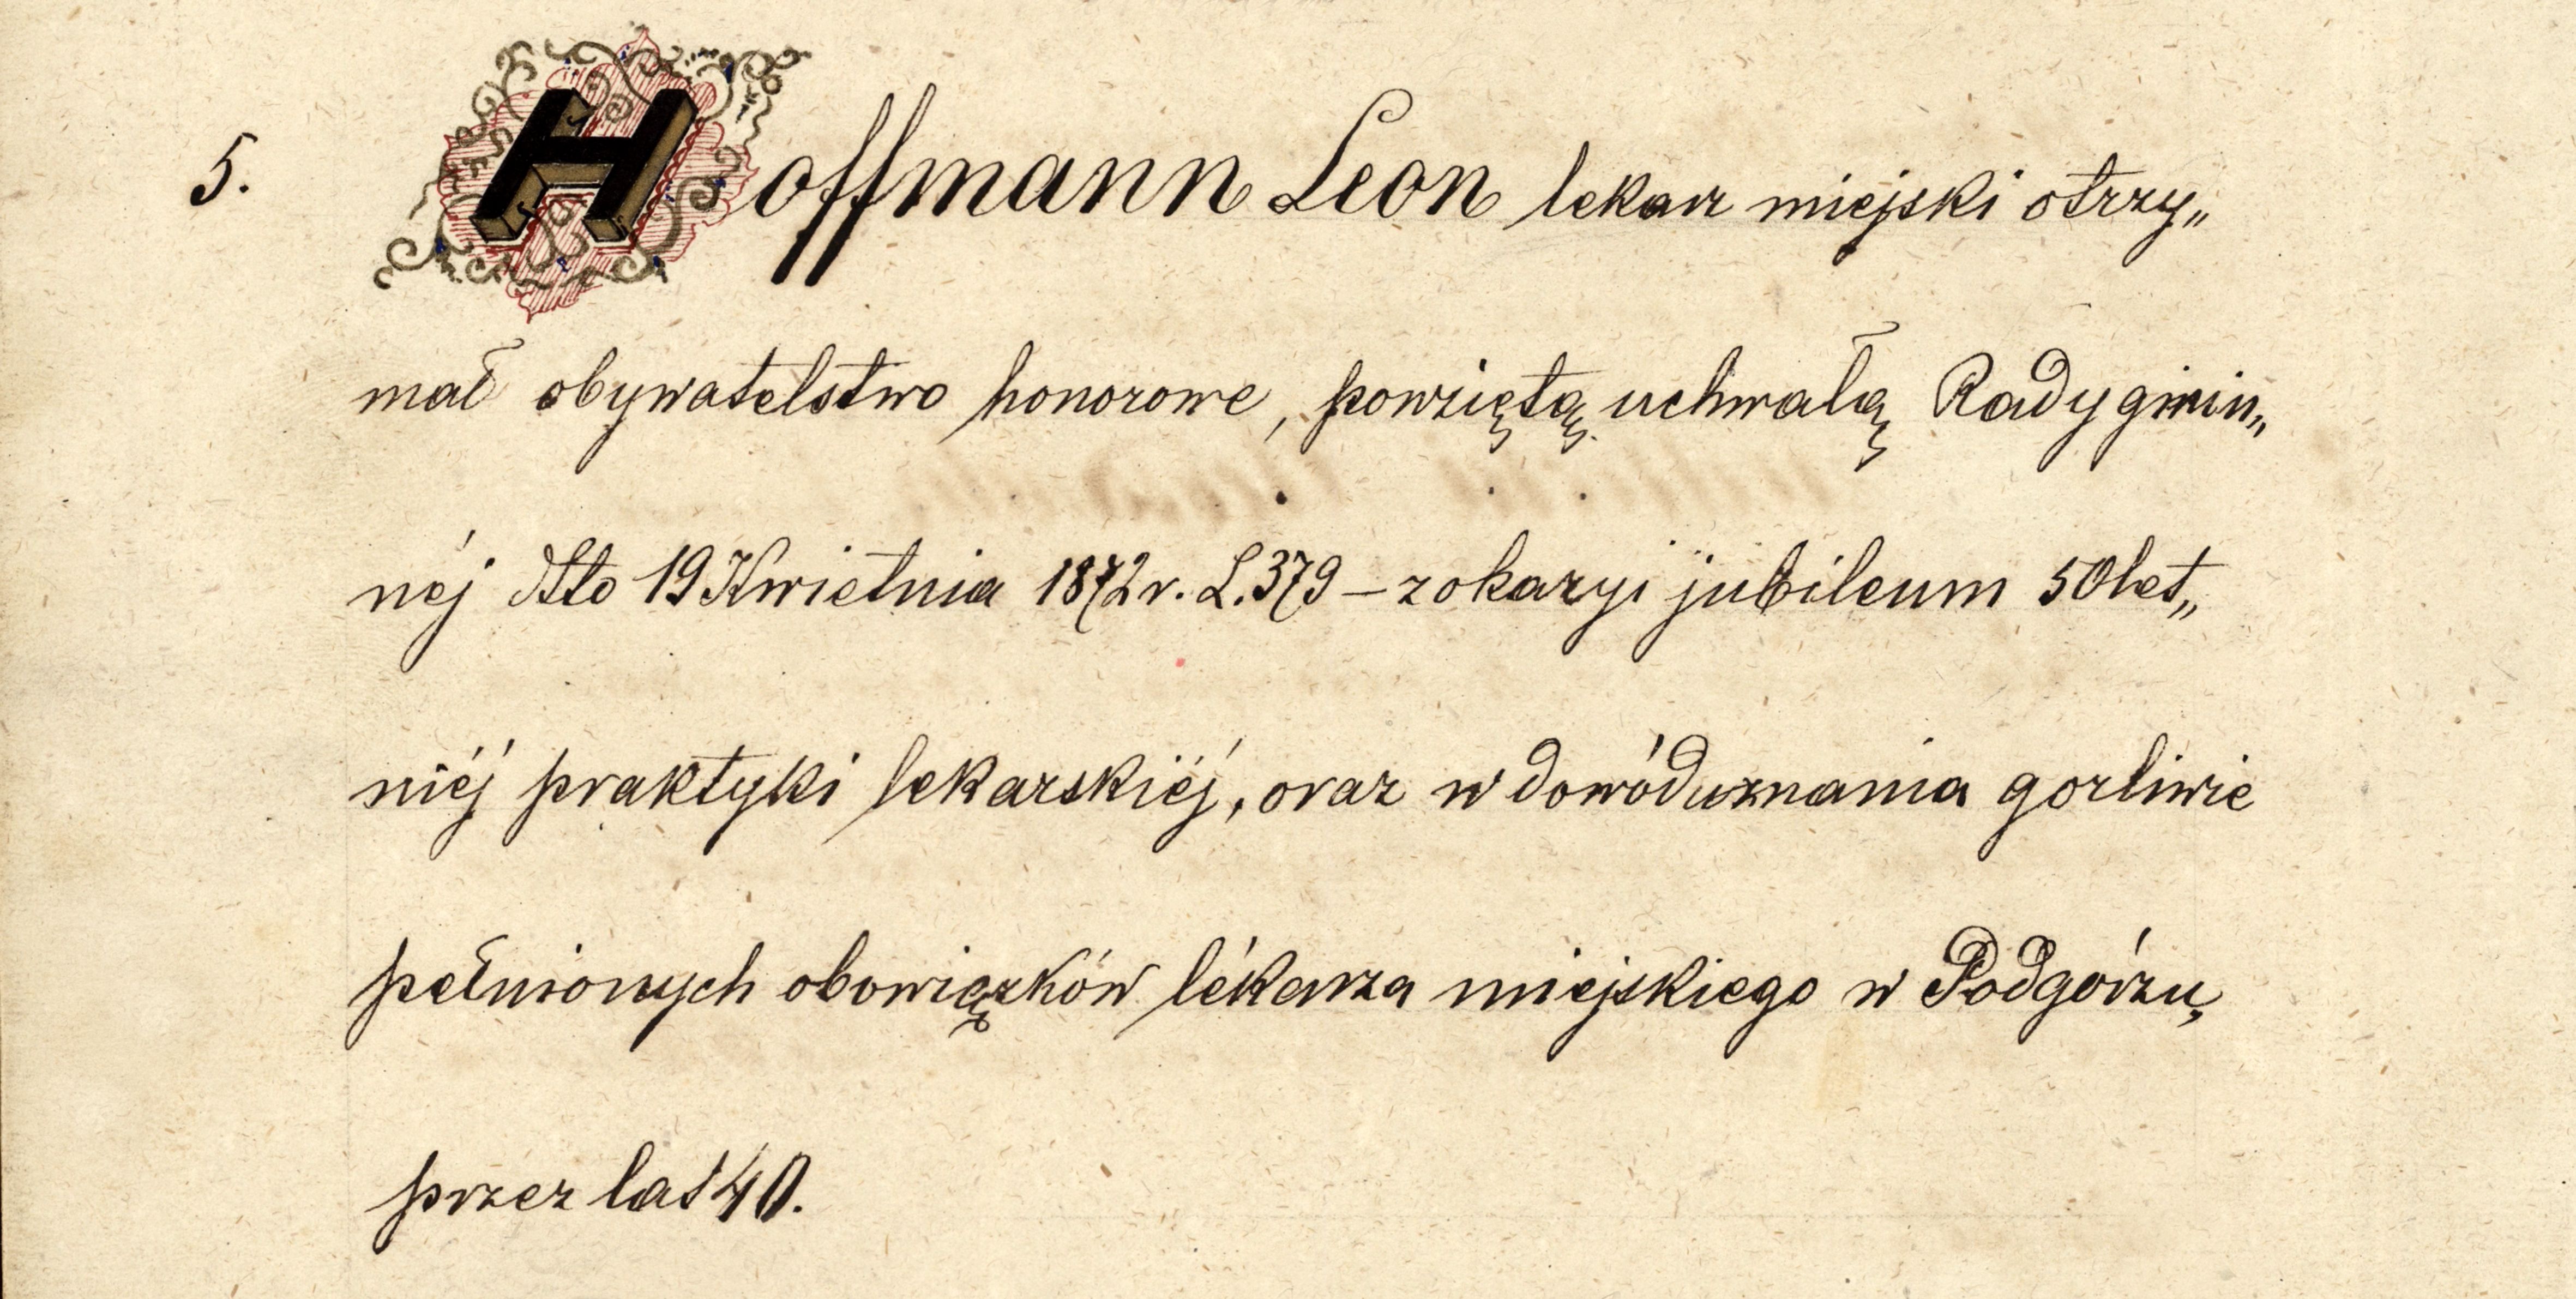 5. Hoffmann Leon lekarz miejski otrzy„
mał obywatelstwo honorowe, powziętą uchwałą Rady gmin„
néj dto 19 Kwietnia 1872 r. L. 379 – z okazyi jubileum 50 let„
niéj praktyki lekarskiéj, oraz w dowód uznania gorliwie
pełnionych obowiązków lékarza miejskiego w Podgórzu,
przez lat 40.